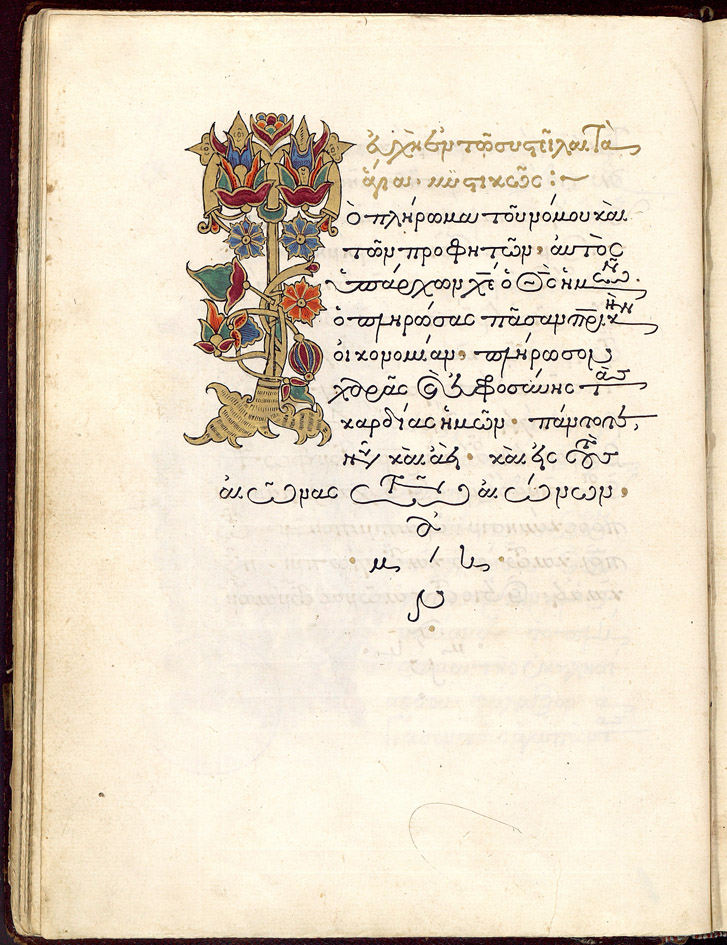 εὐχὴ ἐν τῶ συστεῖλαι Τὰ
ἅγια· μυστικῶς :~
Τὸ πλήρωμα τοῦ νόμου καὶ
τῶν προφητῶν· αὐτὸς
ὑπάρχων χε̅ ὁ θς̅ ἡμῶν·
ὁ πληρώσας πᾶσαν πρικὴν
οἰκονομίαν· πλήρωσον
χαρᾶς καὶ εὐφροσύνης τὰς
καρδίας ἡμῶν· πάντοτε,
νῦν καὶ ἀεὶ· καὶ εἰς τοὺς
αἰῶνας τῶν αἰώνων·
ἀ
μ ὴ
ν